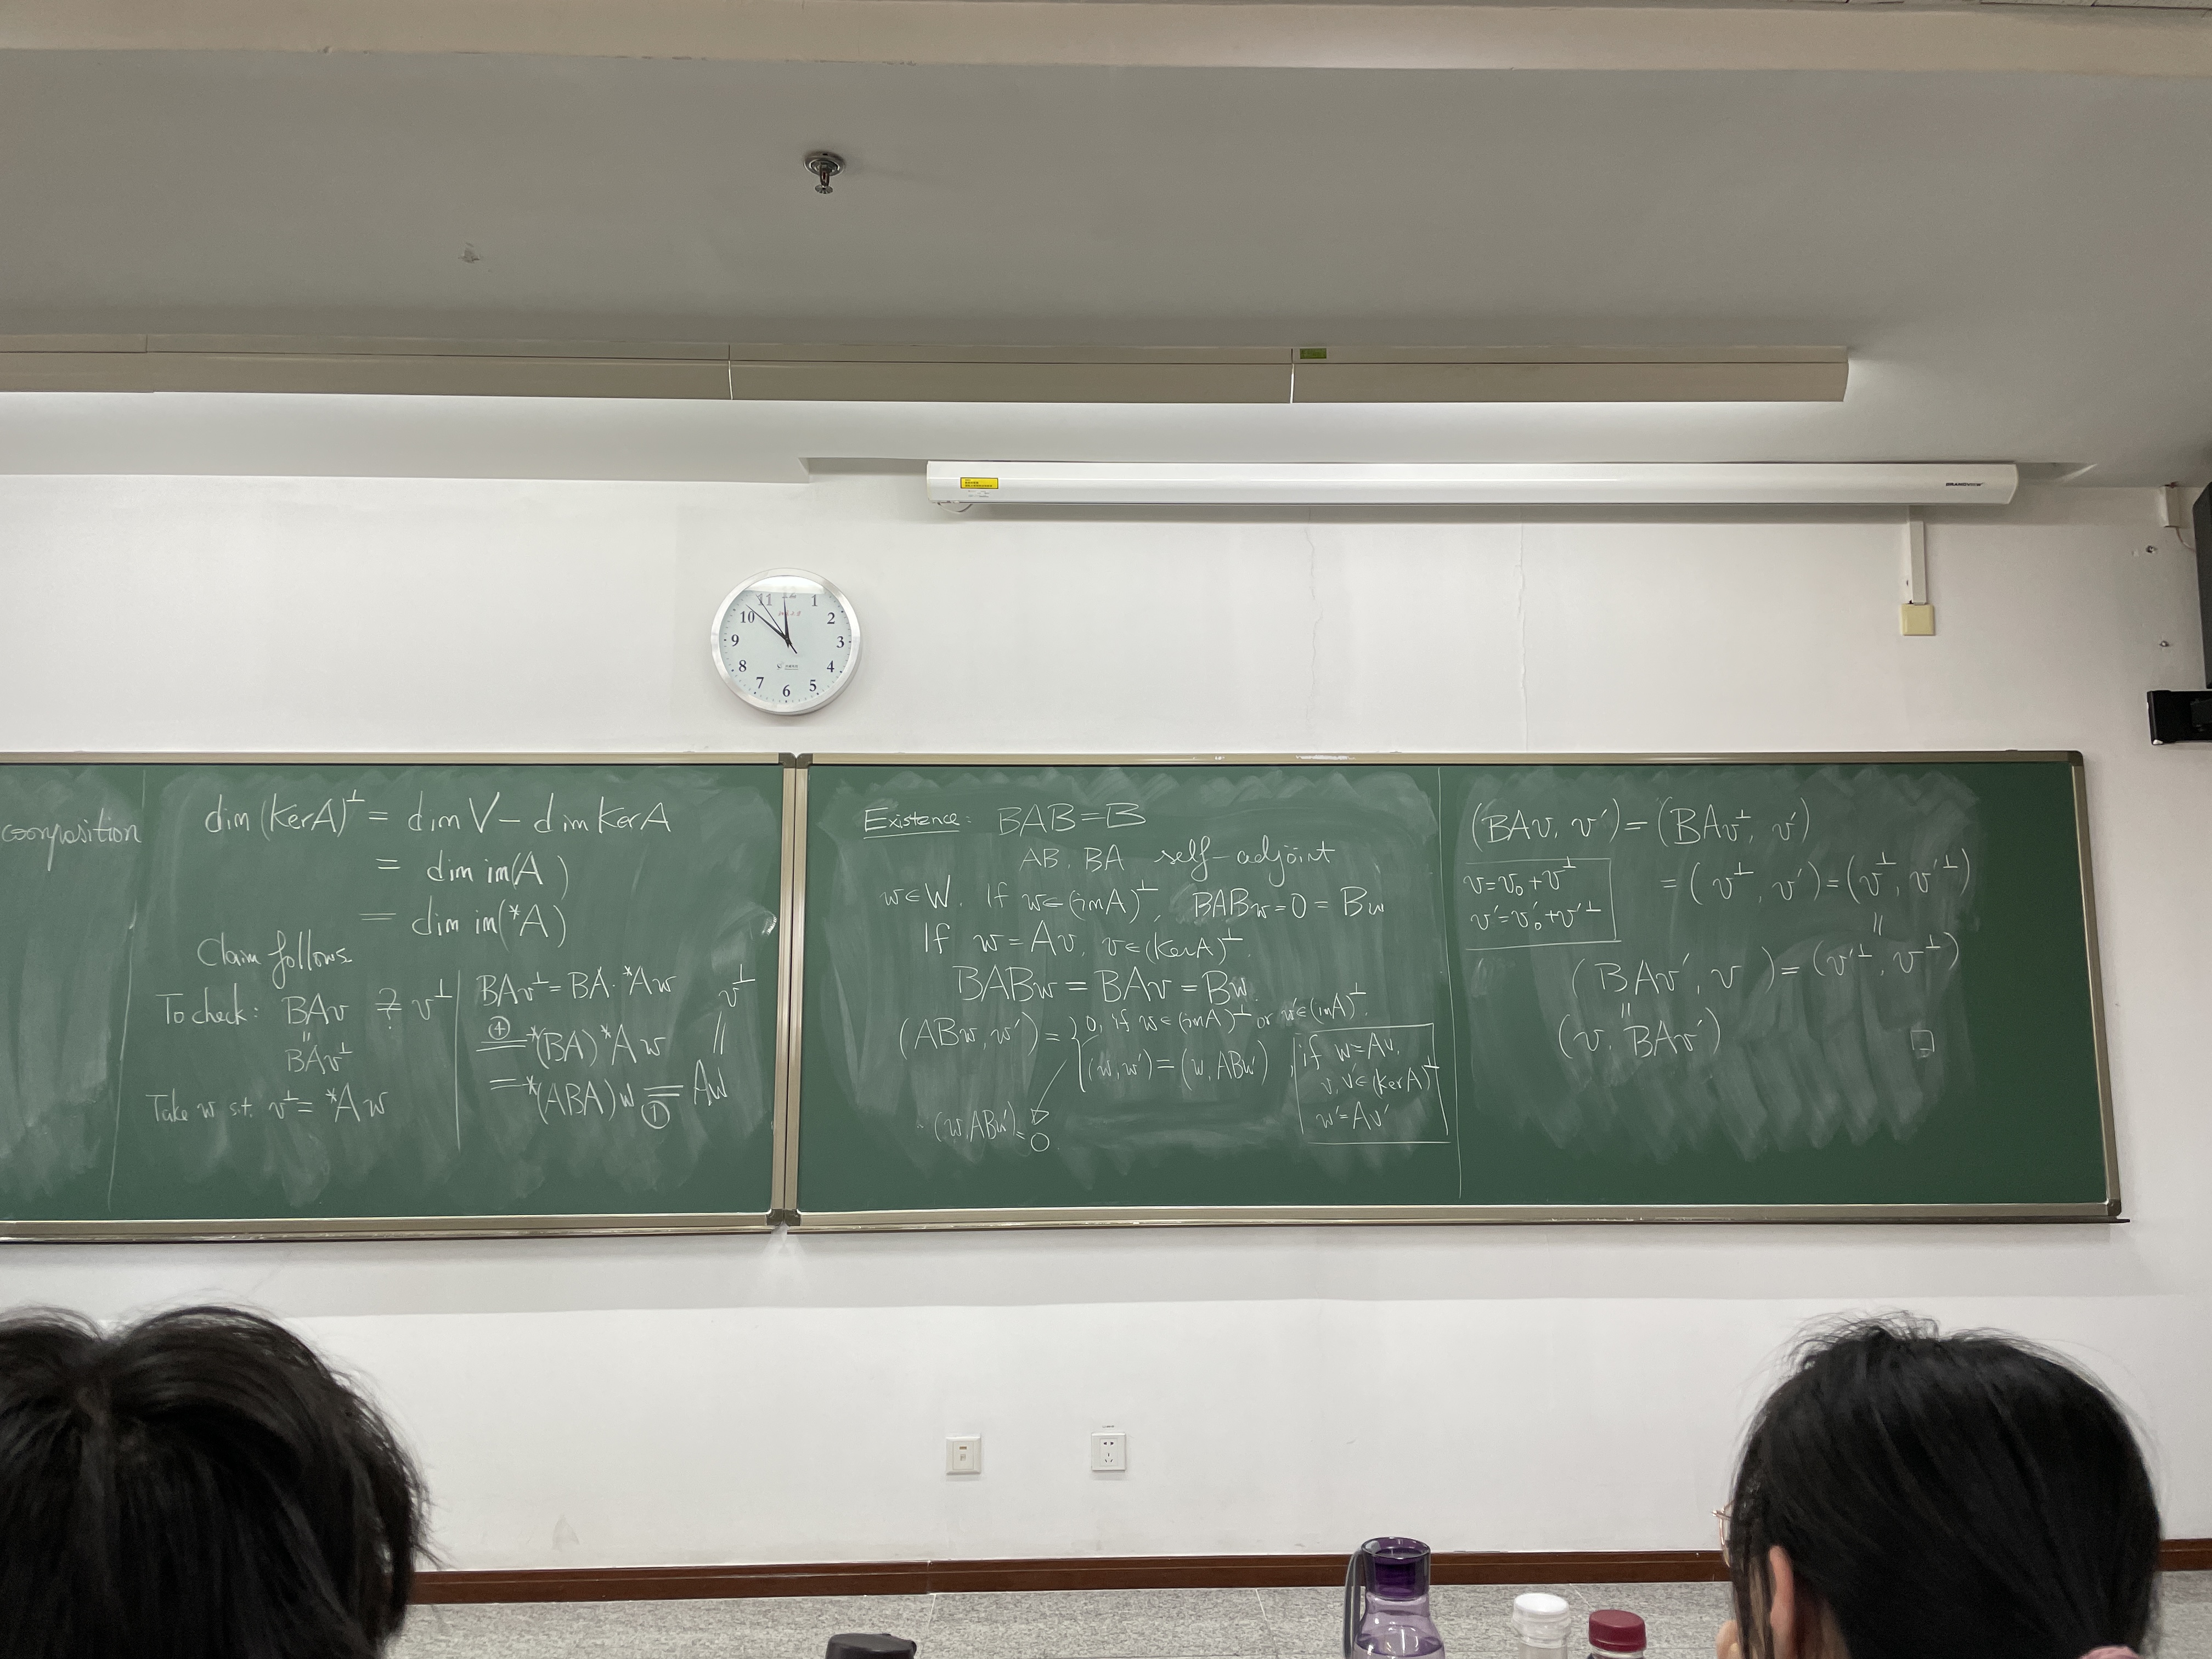 11 1
10 2
9 3
8 4
7 6 5
composition
dim (kerA)^⊥ = dim V - dim kerA
= dim im(A)
= dim im(*A)
Claim follows.
To check: BAv ?= v^⊥
=
BAv^⊥
Take w s.t. v^⊥ = *Aw
BAv^⊥ = BA·*Aw v^⊥
④ = *(BA)*Aw =
= *(ABA)w =① Aw
Existence: BAB=B
AB, BA self-adjoint
w∈W. If w∈(imA)^⊥, BABw=0=Bw
If w=Av, v∈(kerA)^⊥.
BABw = BAv = Bw.
(ABw, w') = { 0, if w∈(imA)^⊥ or w'∈(imA)^⊥.
(w, w') = (w, ABw'),
(w, ABw') = 0
if w=Av,
v, v'∈(kerA)^⊥
w'=Av'
(BAv, v') = (BAv^⊥, v')
v=v₀+v^⊥
v'=v'₀+v'^⊥
= (v^⊥, v') = (v^⊥, v'^⊥)
=
(BAv', v) = (v'^⊥, v^⊥)
=
(v, BAv')
□